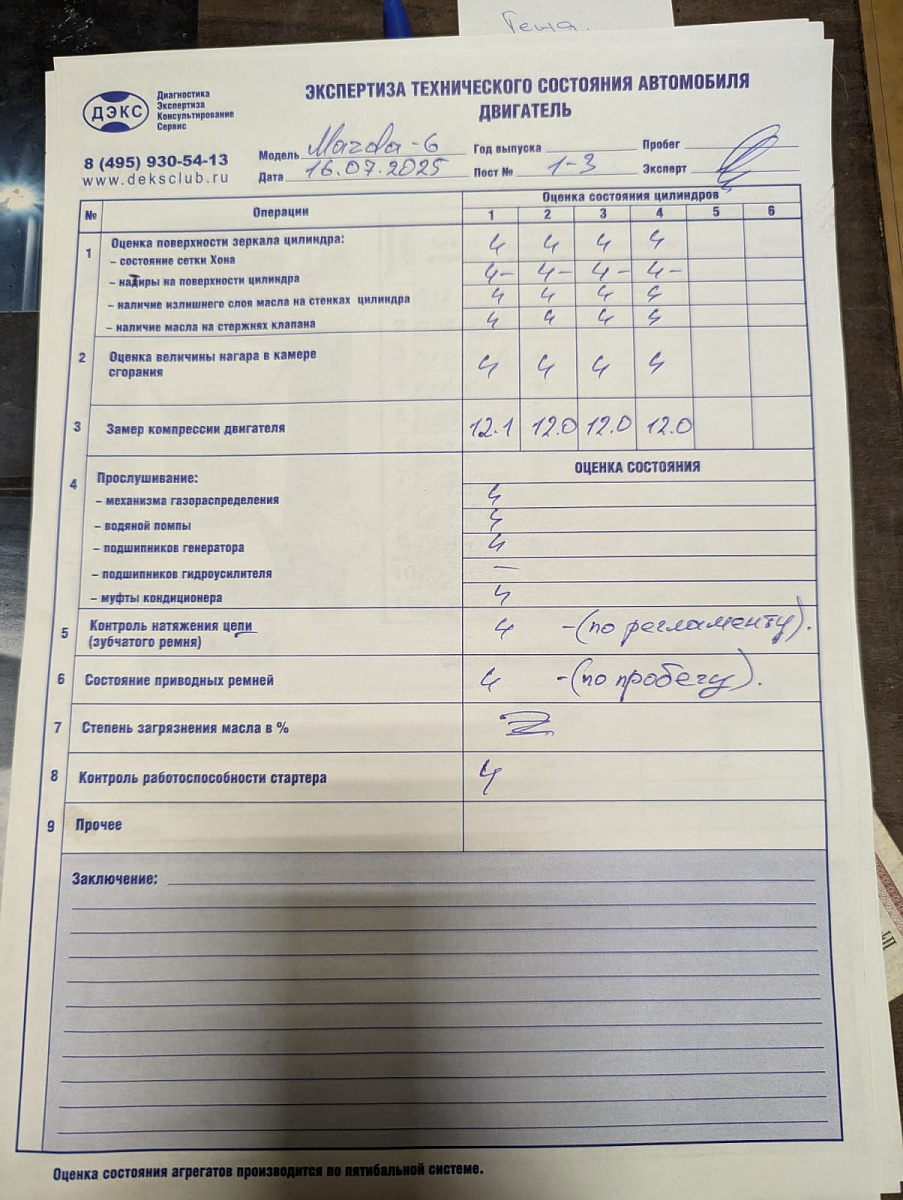 Гена.
ДЭКС
Диагностика
Экспертиза
Консультирование
Сервис
8 (495) 930-54-13
www.deksclub.ru
ЭКСПЕРТИЗА ТЕХНИЧЕСКОГО СОСТОЯНИЯ АВТОМОБИЛЯ
ДВИГАТЕЛЬ
Модель Mazda-6 Год выпуска Пробег
Дата 16.07.2025 Пост № 1-3 Эксперт
№ Операции Оценка состояния цилиндров
1 2 3 4 5 6
1 Оценка поверхности зеркала цилиндра: 4 4 4 4
– состояние сетки Хона
– натиры на поверхности цилиндра 4- 4- 4- 4-
– наличие излишнего слоя масла на стенках цилиндра 4 4 4 4
– наличие масла на стержнях клапана 4 4 4 4
2 Оценка величины нагара в камере
сгорания 4 4 4 4
3 Замер компрессии двигателя 12.1 12.0 12.0 12.0
ОЦЕНКА СОСТОЯНИЯ
4 Прослушивание:
– механизма газораспределения 4
– водяной помпы 4
– подшипников генератора 4
– подшипников гидроусилителя —
– муфты кондиционера 4
5 Контроль натяжения цепи
(зубчатого ремня) 4 -(по регламенту).
6 Состояние приводных ремней 4 -(по пробегу).
7 Степень загрязнения масла в %
8 Контроль работоспособности стартера 4
9 Прочее
Заключение:
Оценка состояния агрегатов производится по пятибальной системе.